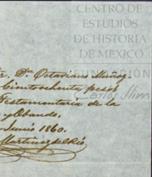 CENTRO DE
ESTUDIOS
DE HISTORIA
DE MEXICO
Dn. Octaviano Muñoz
Cientochenta pesos
Testamentaria de la
y Obando.
Junio 1860.
Martinez del Rio